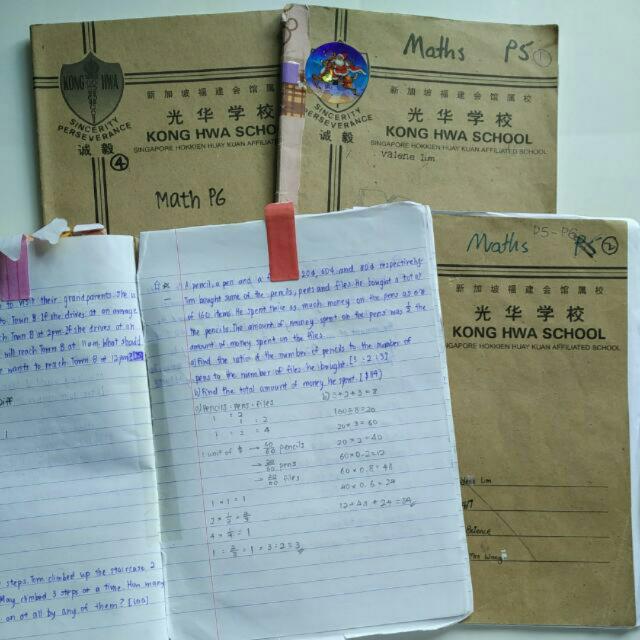 KONG HWA
SINCERITY
PERSEVERANCE
诚毅
④
新加坡福建会馆属校
光华学校
KONG HWA SCHO
SINGAPORE HOKKIEN HUAY KUAN AFFILIAT
Math P6
Maths P5 ①
SINCERITY
PERSEVERANCE
诚毅
新加坡福建会馆属校
光华学校
KONG HWA SCHOOL
SINGAPORE HOKKIEN HUAY KUAN AFFILIATED SCHOOL
Valerie Lim
Maths P5-P6 ②
新加坡福建会馆属校
光华学校
KONG HWA SCHOOL
GAPORE HOKKIEN HUAY KUAN AFFILIATED SCHOOL
Lim
to visit their grandparents. She
to Town B. If she drives at an average
Town B at 2pm. If she drives at an
will reach Town B at 11am. What should
wants to reach Town B at 12pm?
Diff
steps. Tom climbed up the staircase 2
May climbed 3 steps at a time. How many
on at all by any of them?
A pencil, a pen and a 20¢, 60¢ and 80¢ respectively.
Tim bought some of the pencils, pens and files. He bought a total
of 160 items. He spent twice as much money on the pens as on
the pencils. The amount of money spent on the pens was the
amount of money spent on the files.
a) Find the ratio of the number of pencils to the number of
pens to the number of files he bought. [3:2:3]
b) Find the total amount of money he spent. [$84]
a) Pencils : pens : files
1 : 2
1 : 2
1 : 2 : 4
1 unit of $ → pencils
→ pens
→ files
1 × 1 = 1
b) 3+2+3=8
160÷8=20
20×3=60
20×2=40
60×0.2=12
60×0.8=48
40×0.6=24
12+48+24=84